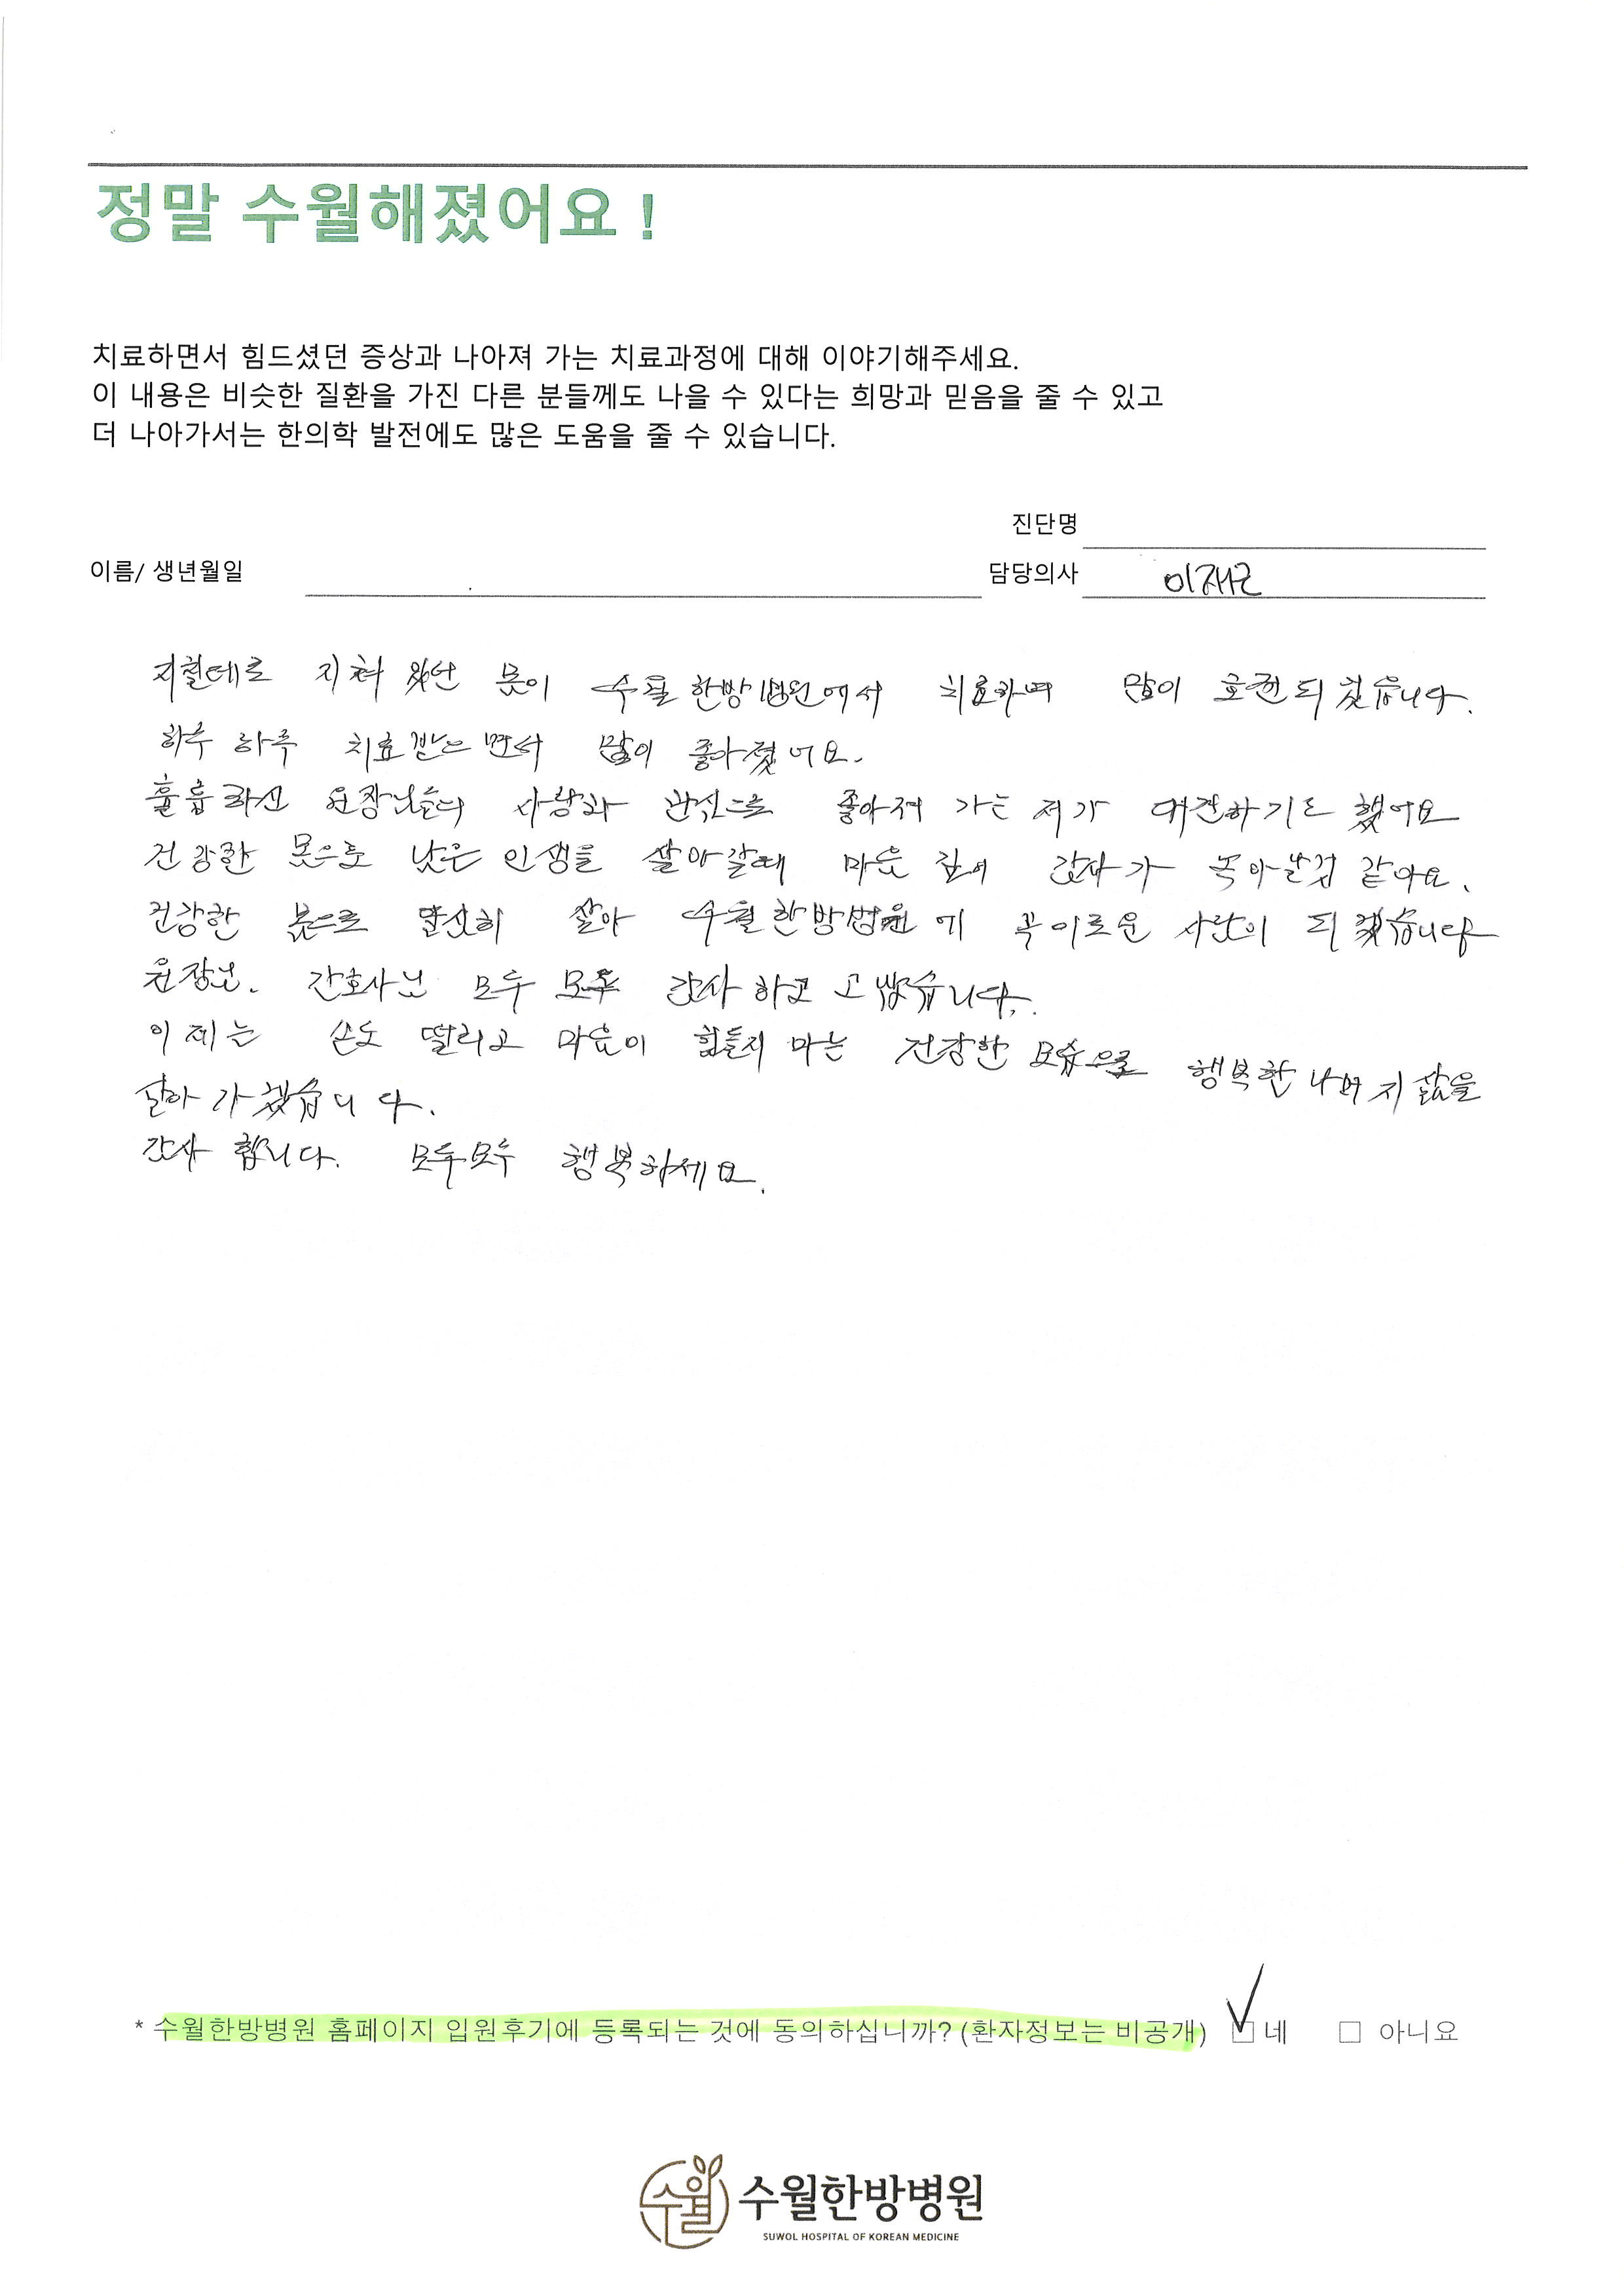 정말 수월해졌어요 !
치료하면서 힘드셨던 증상과 나아져 가는 치료과정에 대해 이야기해주세요.
이 내용은 비슷한 질환을 가진 다른 분들께도 나을 수 있다는 희망과 믿음을 줄 수 있고
더 나아가서는 한의학 발전에도 많은 도움을 줄 수 있습니다.
진단명
이름/ 생년월일
담당의사 이재근
지칠데로 지쳐 있던 몸이 수월한방병원에서 치료하며 많이 호전되었습니다.
하루 하루 치료받으면서 많이 좋아졌어요.
훌륭하신 원장님들의 사랑과 관심으로 좋아져 가는 저가 대견하기도 했어요
건강한 몸으로 남은 인생을 살아갈때 마음 깊이 감사가 녹아날것 같아요.
건강한 몸으로 열심히 살아 수월한방병원에 꼭 이로운 사람이 되겠습니다
원장님. 간호사님 모두 모두 감사하고 고맙습니다.
이제는 손도 떨리고 마음이 힘들지 마는 건강한 모습으로 행복한 나머지 삶을
살아 가겠습니다.
감사 합니다. 모두모두 행복하세요.
* 수월한방병원 홈페이지 입원후기에 등록되는 것에 동의하십니까? (환자정보는 비공개) ☑ 네 □ 아니요
수월 수월한방병원
SUWOL HOSPITAL OF KOREAN MEDICINE